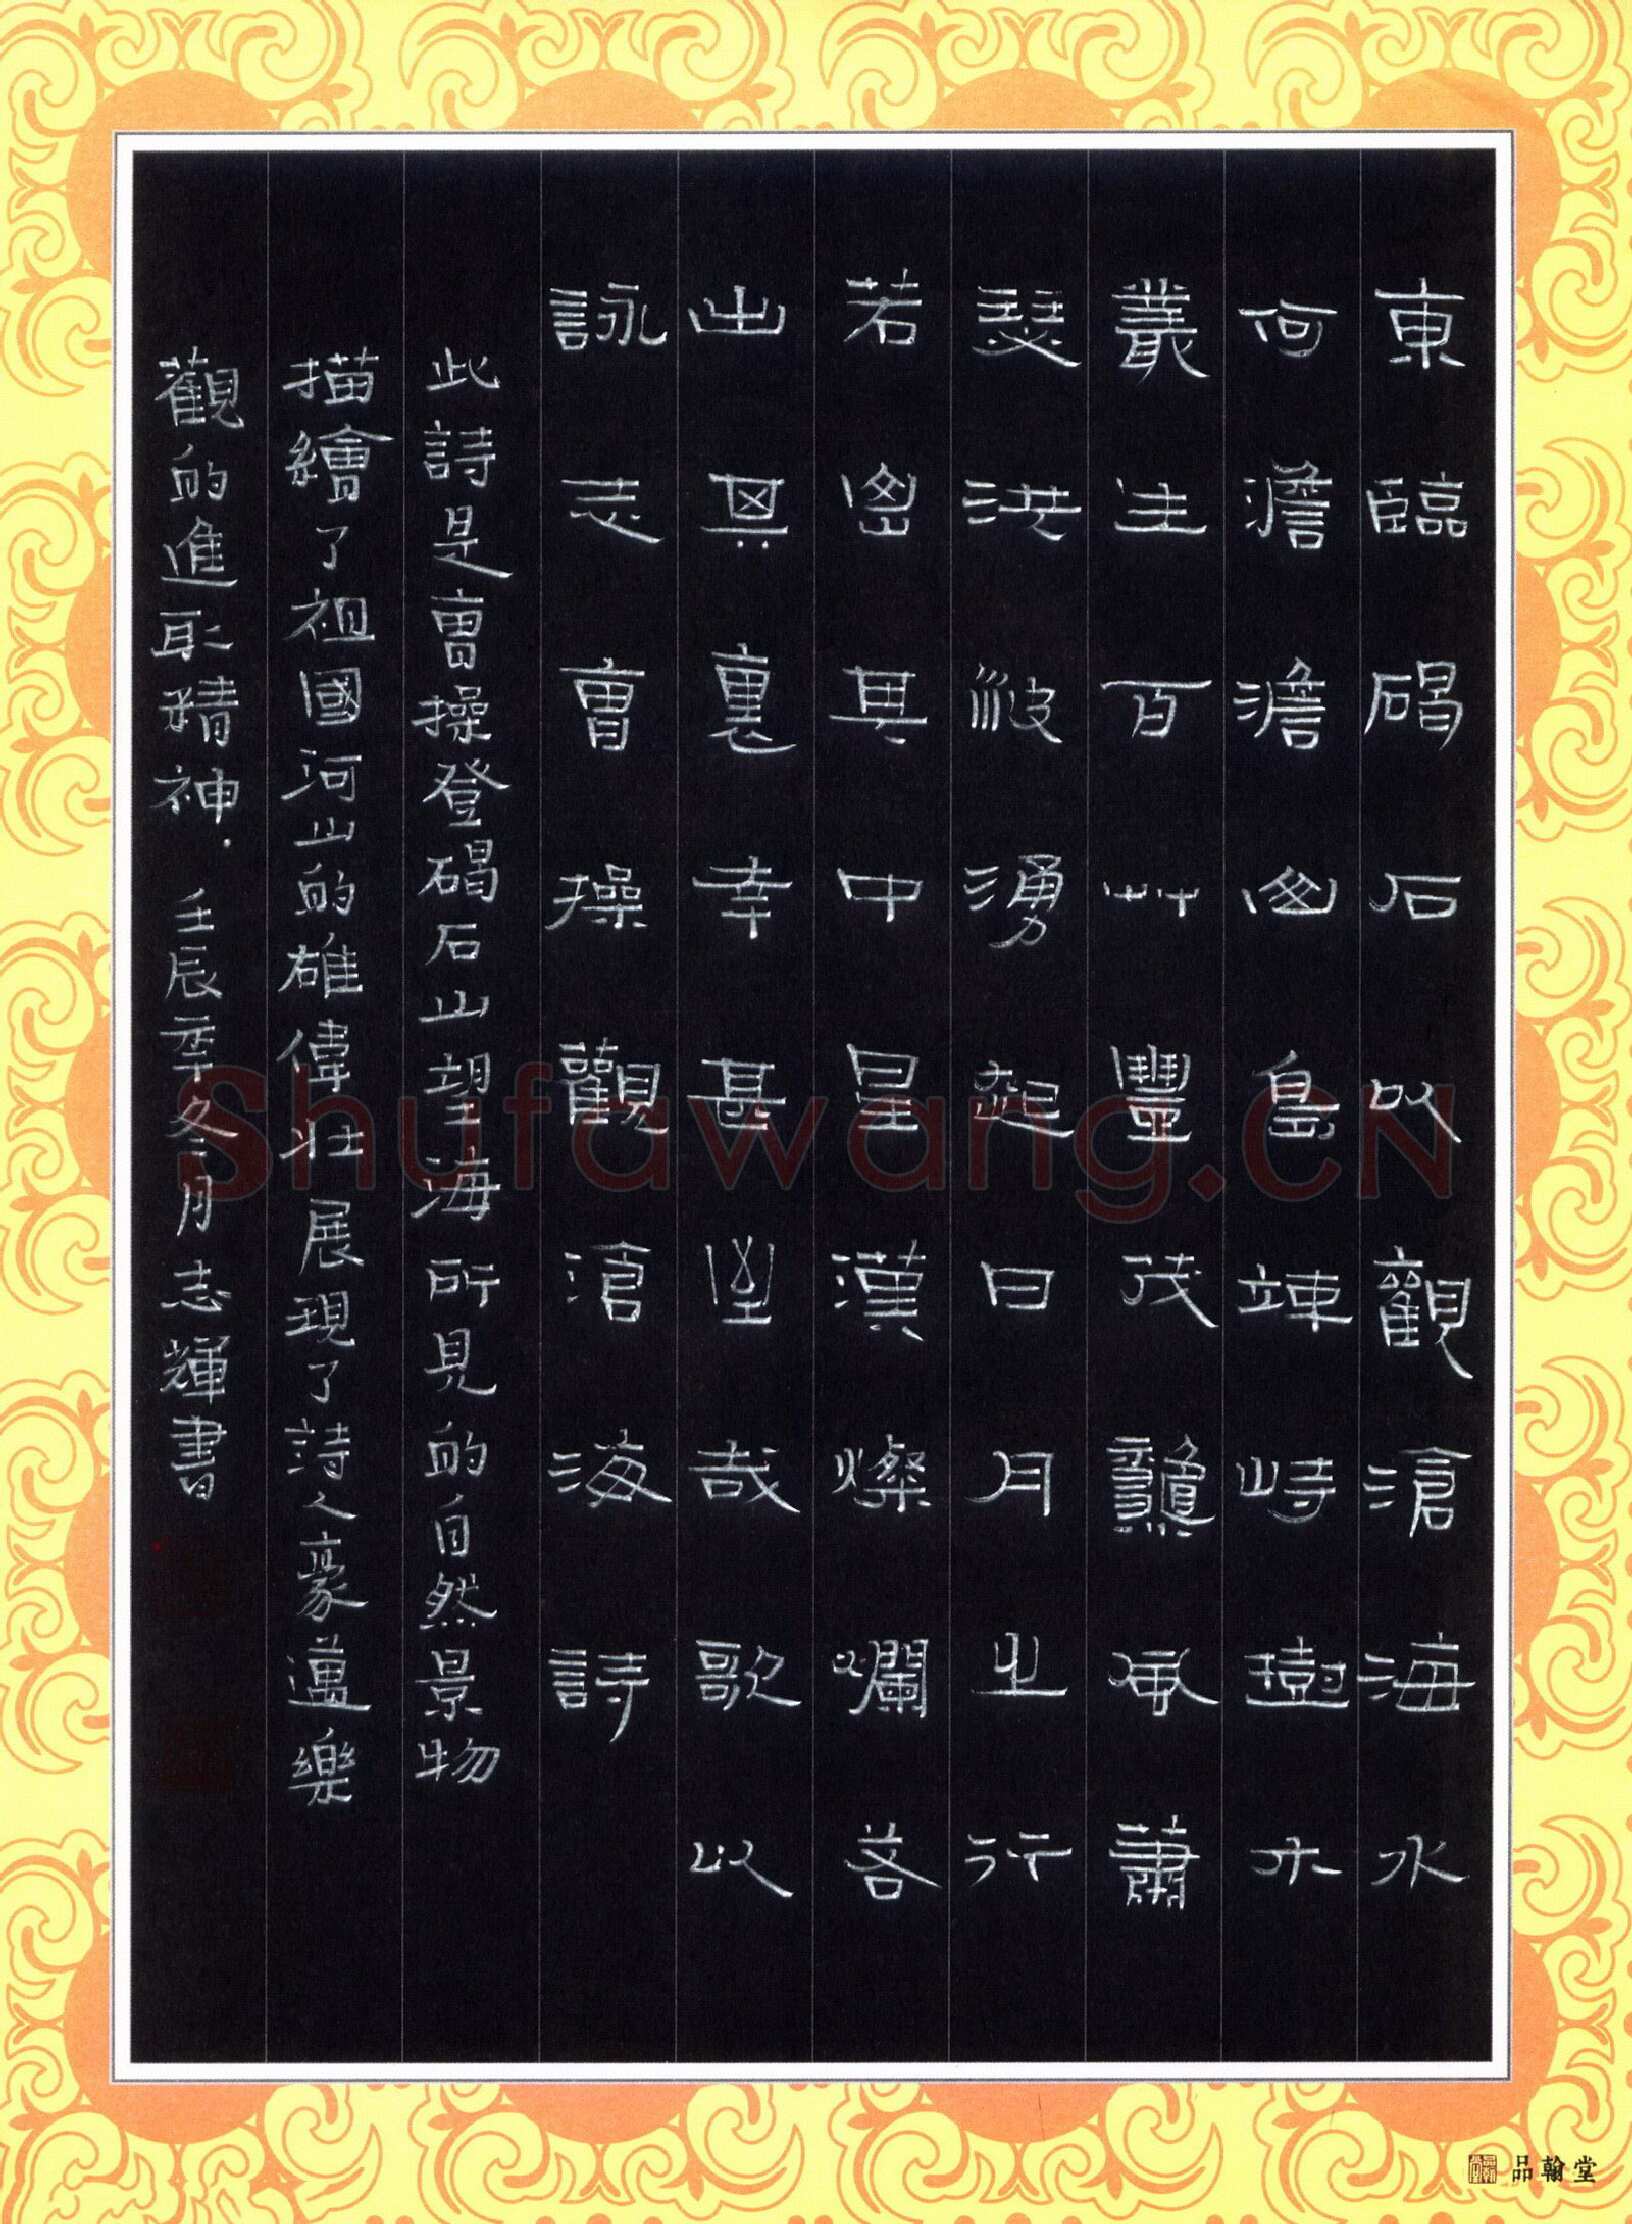 東臨碣石以觀滄海水
何澹澹山島竦峙樹木
叢生百艸豐茂龝風蕭
瑟洪波湧起日月之行
若出其中星漢燦爛若
出其裏幸甚至哉歌以
詠志曹操觀滄海詩
此詩是曹操登碣石山望海所見的自然景物
描繪了祖國河山的雄偉壯展現了詩人豪邁樂
觀的進取精神．壬辰季冬月志輝書
Shufawang.CN
品翰堂